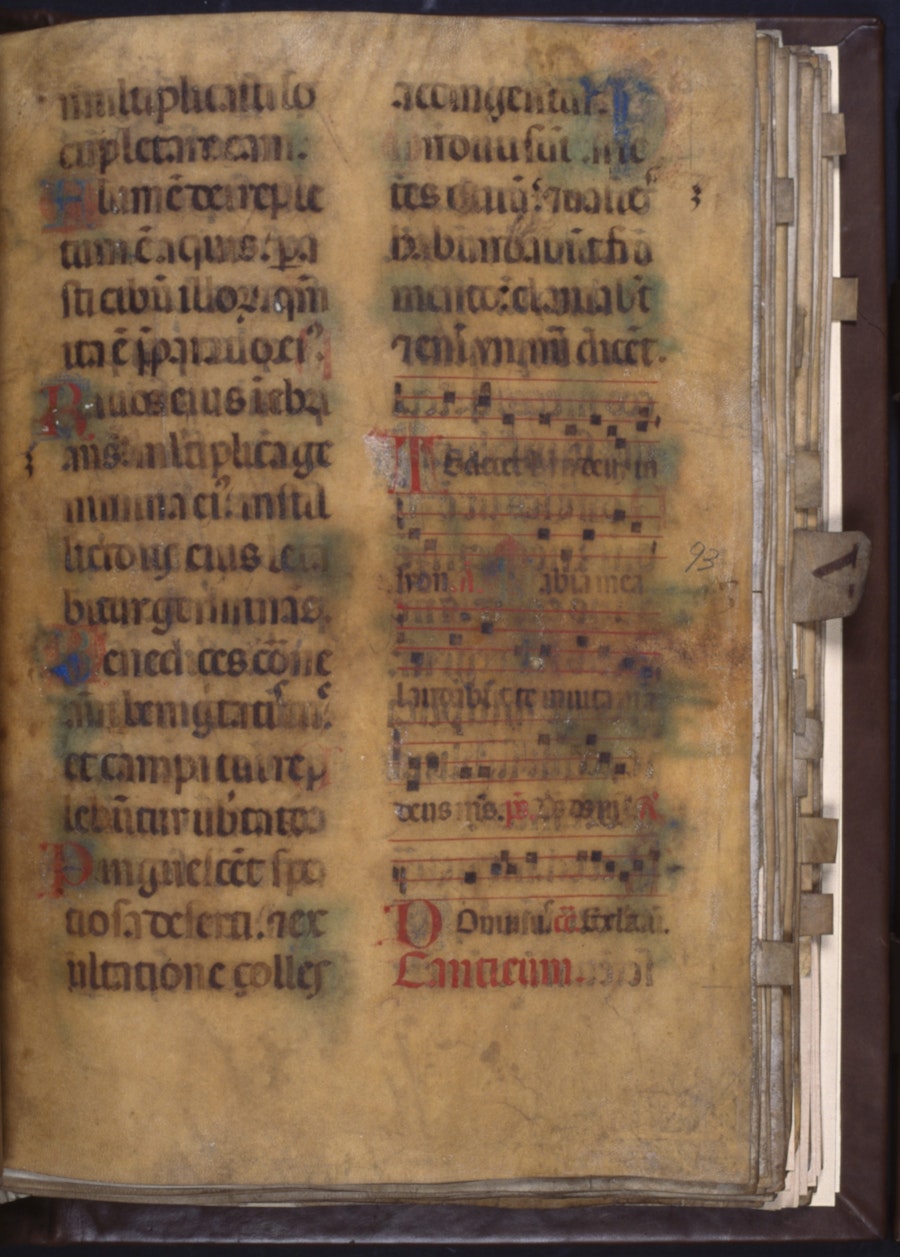 multiplicasti lo
cupletare eam.
Flum̄ē dei reple
tum ē aquis. pa
sti cibū illoꝝ. qm̄
ita ē p̄paratio eiꝰ.
Riuos eius īebri
ās. multiplica ge
nimina eiꝰ. in stil
licidiis eius leta
bitur germinās.
Benedices corone
āni benignitatis tue.
et campi tui rep
lebūtur ubertate.
Pinguescēt spe
ciosa deserti. ⁊ ex
ultatione colles
accingentur.
Induti sūt arie
tes ouiū. ⁊ ualles
habundabūt fru
mento: clamabūt
⁊ enī ymnū dicēt.
Te decet ymnus
syon. A. Labia mea
laudabūt te in uita mea
deus ms. ps. Ds ds ms A.
Canticum.
93